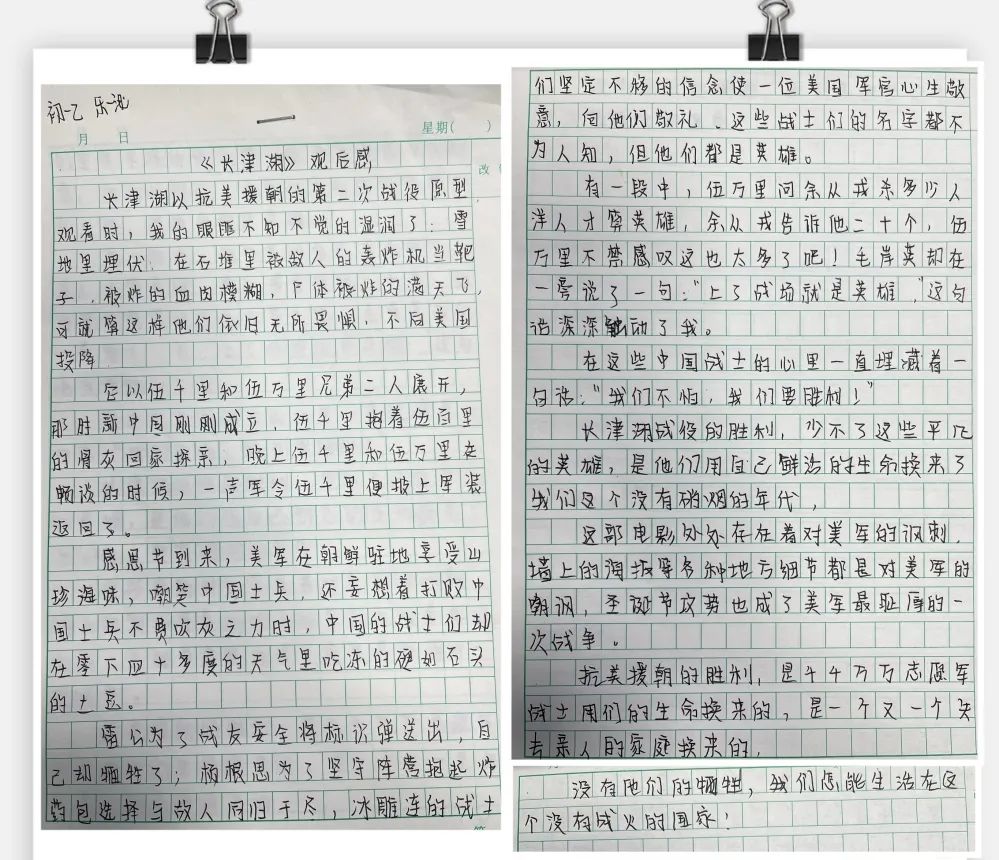 初一乙 乐一
月 日
星期( )
《长津湖》观后感
改
长津湖以抗美援朝的第二次战役原型,
观看时,我的眼眶不知不觉的湿润了:雪
地里埋伏,在石堆里被敌人的轰炸机当靶
子,被炸的血肉模糊,尸体被炸的满天飞,
可就算这样他们依旧无所畏惧,不向美国
投降。
它以伍千里和伍万里兄弟二人展开,
那时新中国刚刚成立,伍千里抱着伍百里
的骨灰回家探亲,晚上伍千里和伍万里在
畅谈的时候,一声军令伍千里便披上军装
返回了。
感恩节到来,美军在朝鲜驻地享受山
珍海味,嘲笑中国士兵,还妄想着打败中
国士兵不费吹灰之力时,中国的战士们却
在零下四十多度的天气里吃冻的硬如石头
的土豆。
雷公为了战友安全将标识弹送出,自
己却牺牲了;杨根思为了坚守阵营抱起炸
药包选择与敌人同归于尽,冰雕连的战士
们坚定不移的信念使一位美国军官心生敬
意,向他们敬礼、这些战士们的名字都不
为人知,但他们都是英雄。
有一段中,伍万里问余从戎杀多少人
洋人才算英雄,余从戎告诉他二十个,伍
万里不禁感叹这也太多了吧!毛岸英却在
一旁说了一句:“上了战场就是英雄,”这句
话深深触动了我。
在这些中国战士的心里一直埋藏着一
句话:“我们不怕,我们要胜利!”
长津湖战役的胜利,少不了这些平凡
的英雄,是他们用自己鲜活的生命换来了
我们这个没有硝烟的年代,
这部电影处处存在着对美军的讽刺,
墙上的海报等各种地方细节都是对美军的
嘲讽,圣诞节攻势也成了美军最耻辱的一
次战争。
抗美援朝的胜利,是千千万万志愿军
战士用们的生命换来的,是一个又一个失
去亲人的家庭换来的,
没有他们的牺牲,我们怎能生活在这
个没有战火的国家!